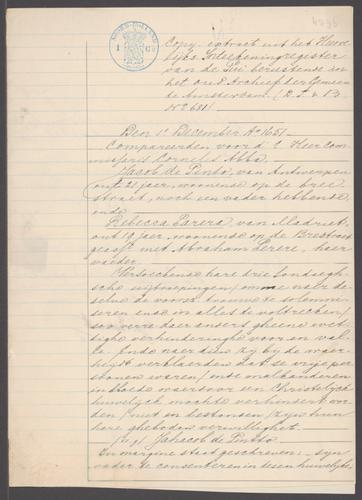 4998
NOORD-HOLLAND
Copy-extract uit het Huwe
lijks Inteekeningregister
van de Pui berustende in
het oud Archief der Gemeen
te Amsterdam. (D.T. & B
No 681)
Den 1e December Ao 1651.
Compareerden voor d'E Heer Com
missaris Cornelis Abba.
Jacob de Pinto, van Antwerpen
out 21 jaer, woonende op de bree
straet, noch een vader hebbende
ende
Rebecca Parera, van Madriet,
out 19 jaer, woonende op de Brestraet
geass. met Abraham Perere, haer
vader
Versoeckende hare drie Sondaegh-
sche uijtroepingen, omme naer de
selve de voorsz. trouwe te solemni-
seren ende in alles te voltrecken,
soo verre daer anders gheene wet-
tighe verhinderinghe voor en val-
le. Ende naer dien zij bij de waer-
heyt verklaerden dat se vrije per-
soonen waren, ende malkanderen
in bloede waer voor een Christelyck
huwelijck mochte verhindert wor-
den, niet en bestonden, zijn hun
hare gheboden verwillighet.
(w.g.) Jahacob de Pintto
In margine staat geschreven: syn
vader te consenteren in desen huwelijcke,